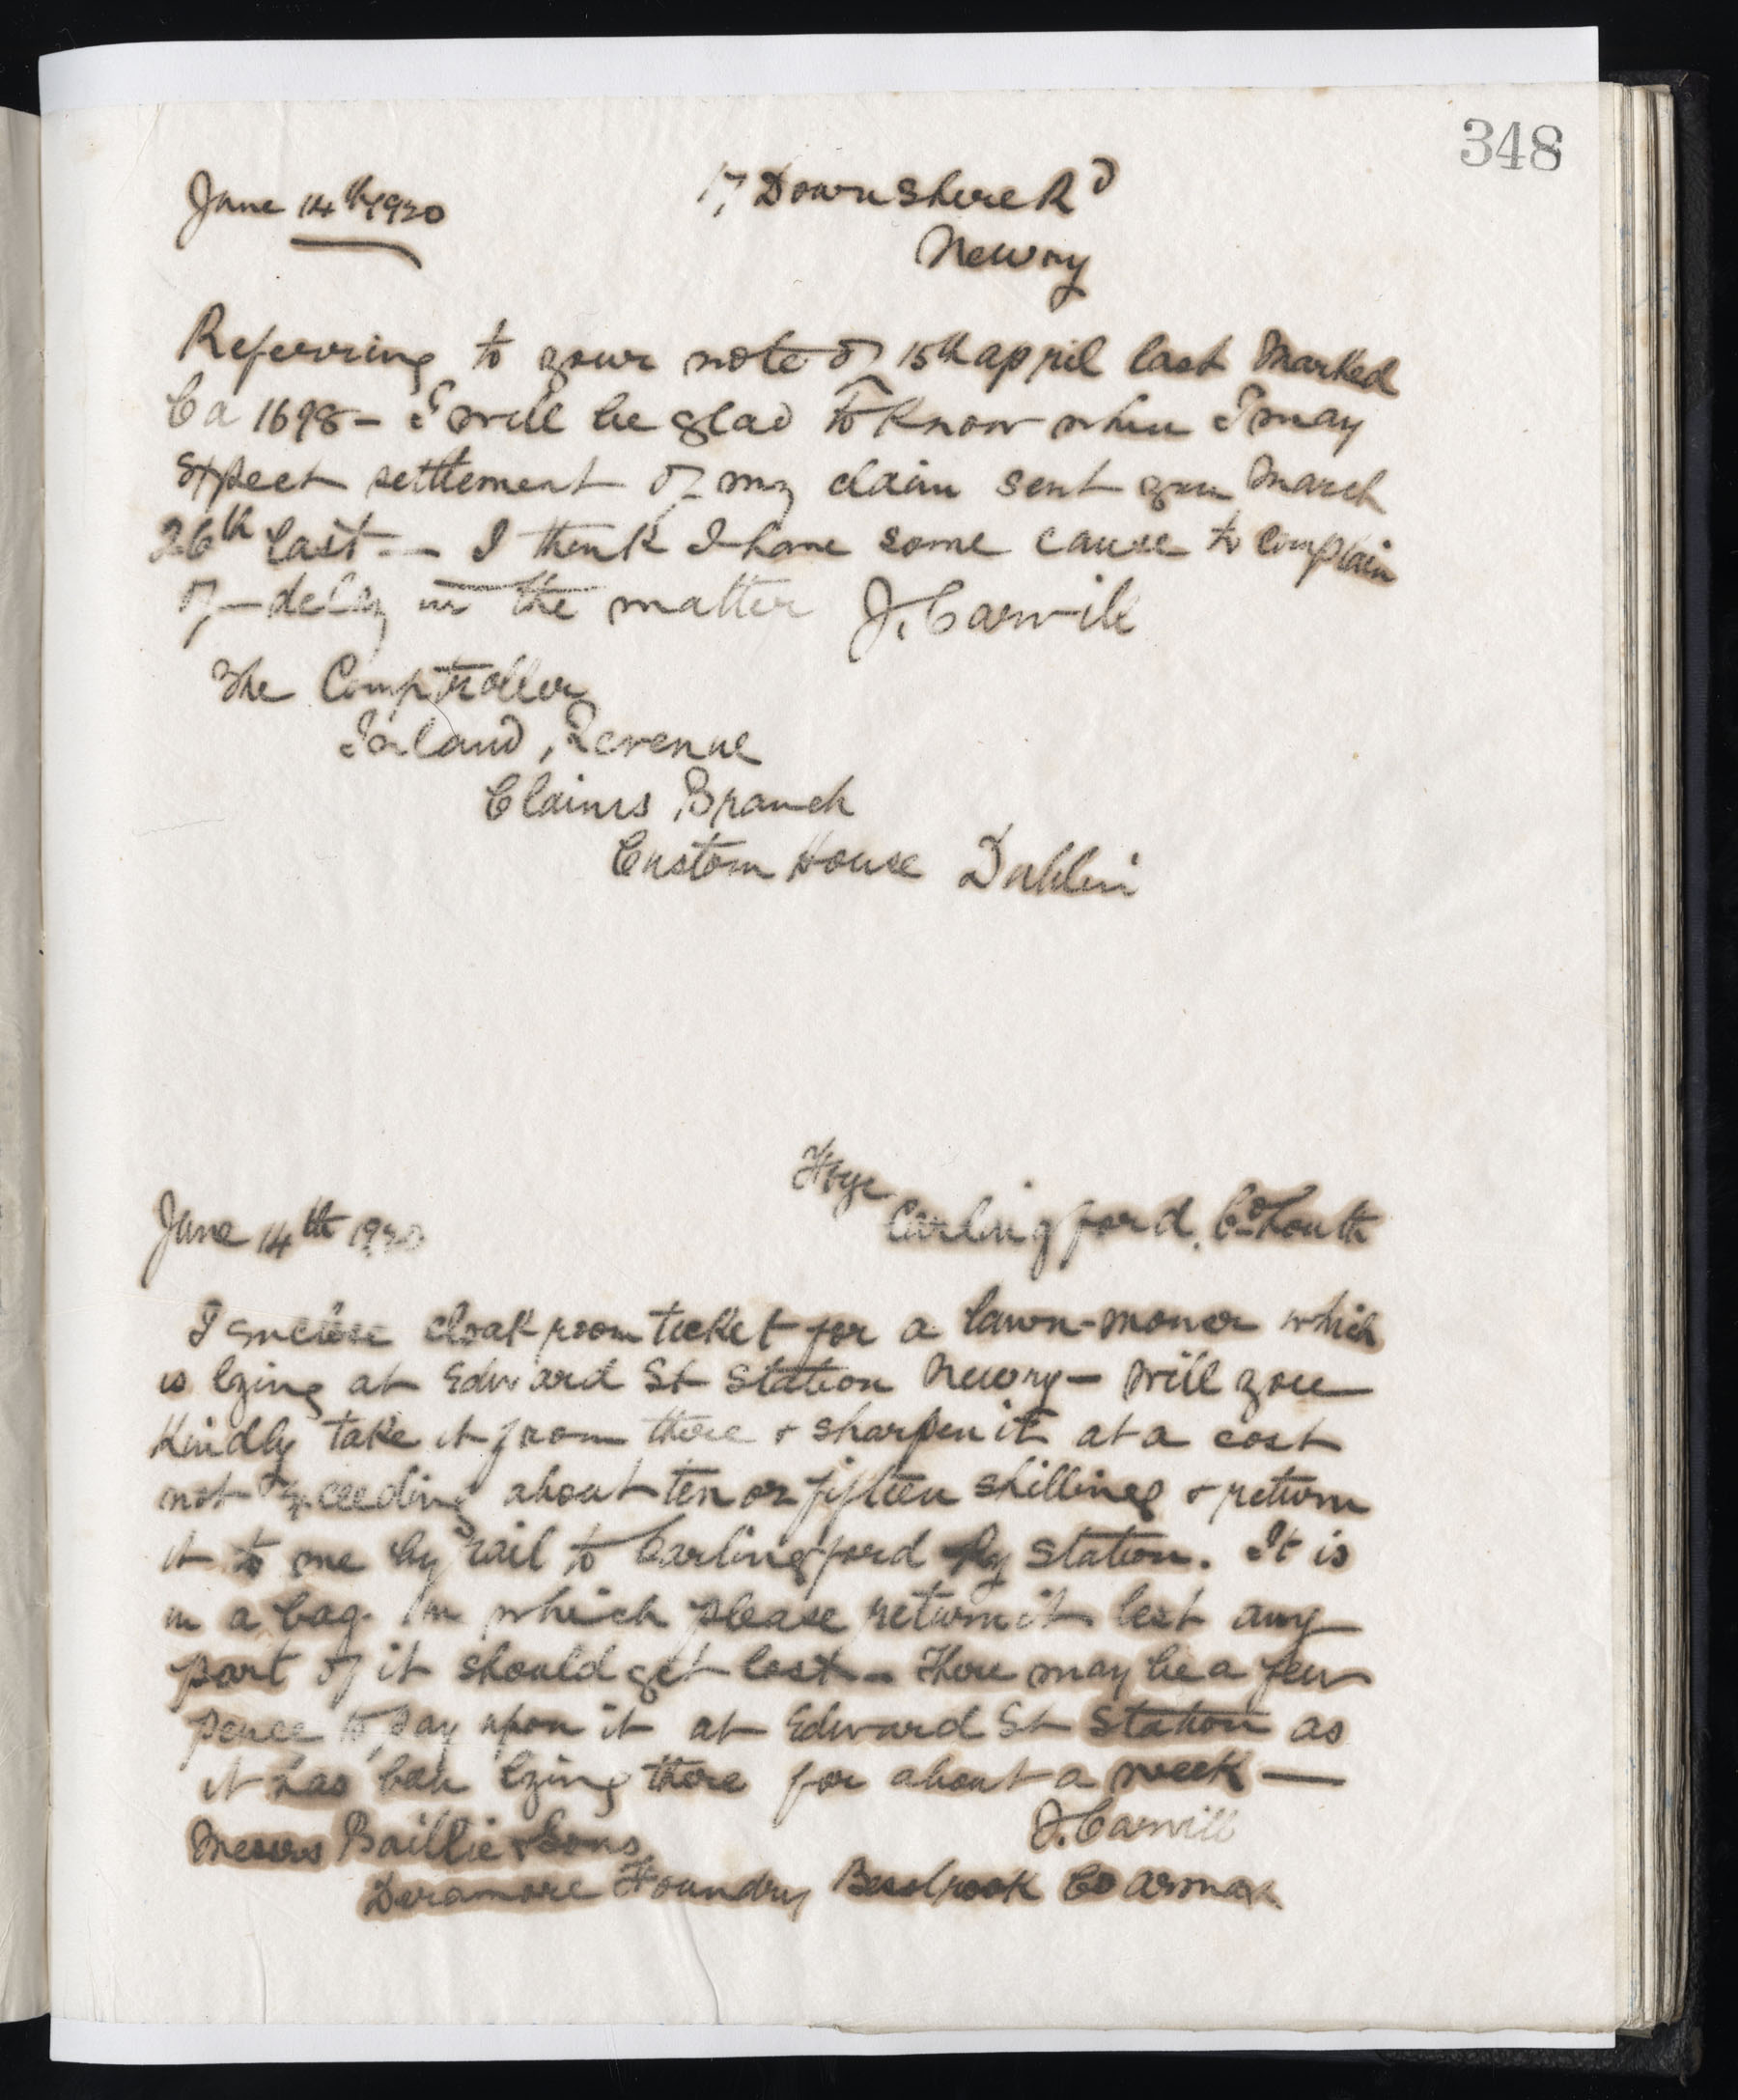 348
June 14th 1920
17 Downshire Rd
Newry
Referring to your note of 15th april last Marked
Ca 1698 - I will be glad to Know when I may
Expect settlement of my claim sent you March
26th last - I think I have some cause to complain
of - delay in the matter J. Carvill
The Comptroller
Inland Revenue
Claims Branch
Custom House Dublin
June 14th 1920
Carlingford, Co Louth
I enclose cloak room ticket for a lawn-mower which
is lying at Edward St Station Newry - Will you
Kindly take it from there & sharpen it at a cost
not Exceeding about ten or fifteen shillings & return
it to me by rail to Carlingford Ry station. It is
in a bag in which please return it lest any
part of it should get lost - There may be a few
pence to pay upon it at Edward St Station as
it has been lying there for about a week -
J. Carvill
Messrs Baillie & Sons,
Deramore Foundry Bessbrook Co Armagh